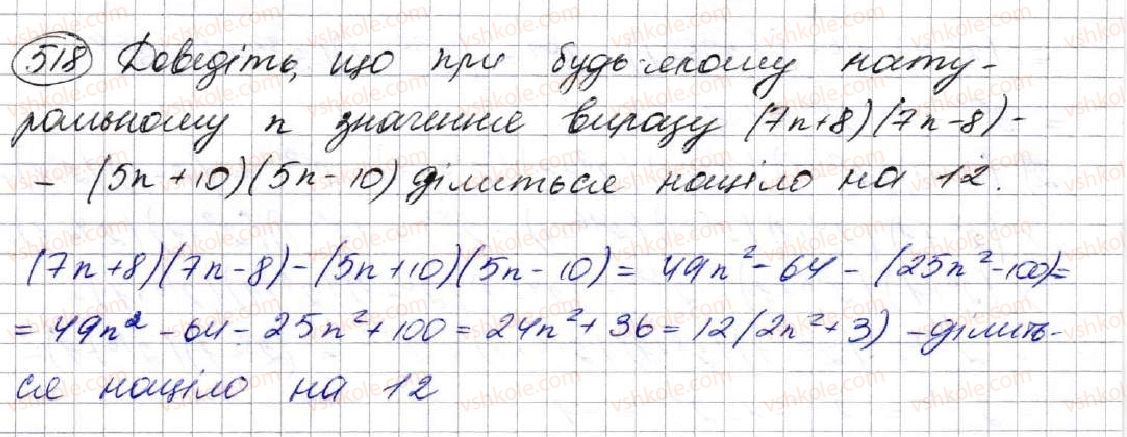 518 Доведіть, що при будь-якому нату-
ральному n значення виразу (7n+8)(7n-8)-
- (5n+10)(5n-10) ділиться націло на 12.
(7n+8)(7n-8)-(5n+10)(5n-10)= 49n²-64-(25n²-100)=
= 49n²-64-25n²+100=24n²+36=12(2n²+3) -ділить-
ся націло на 12